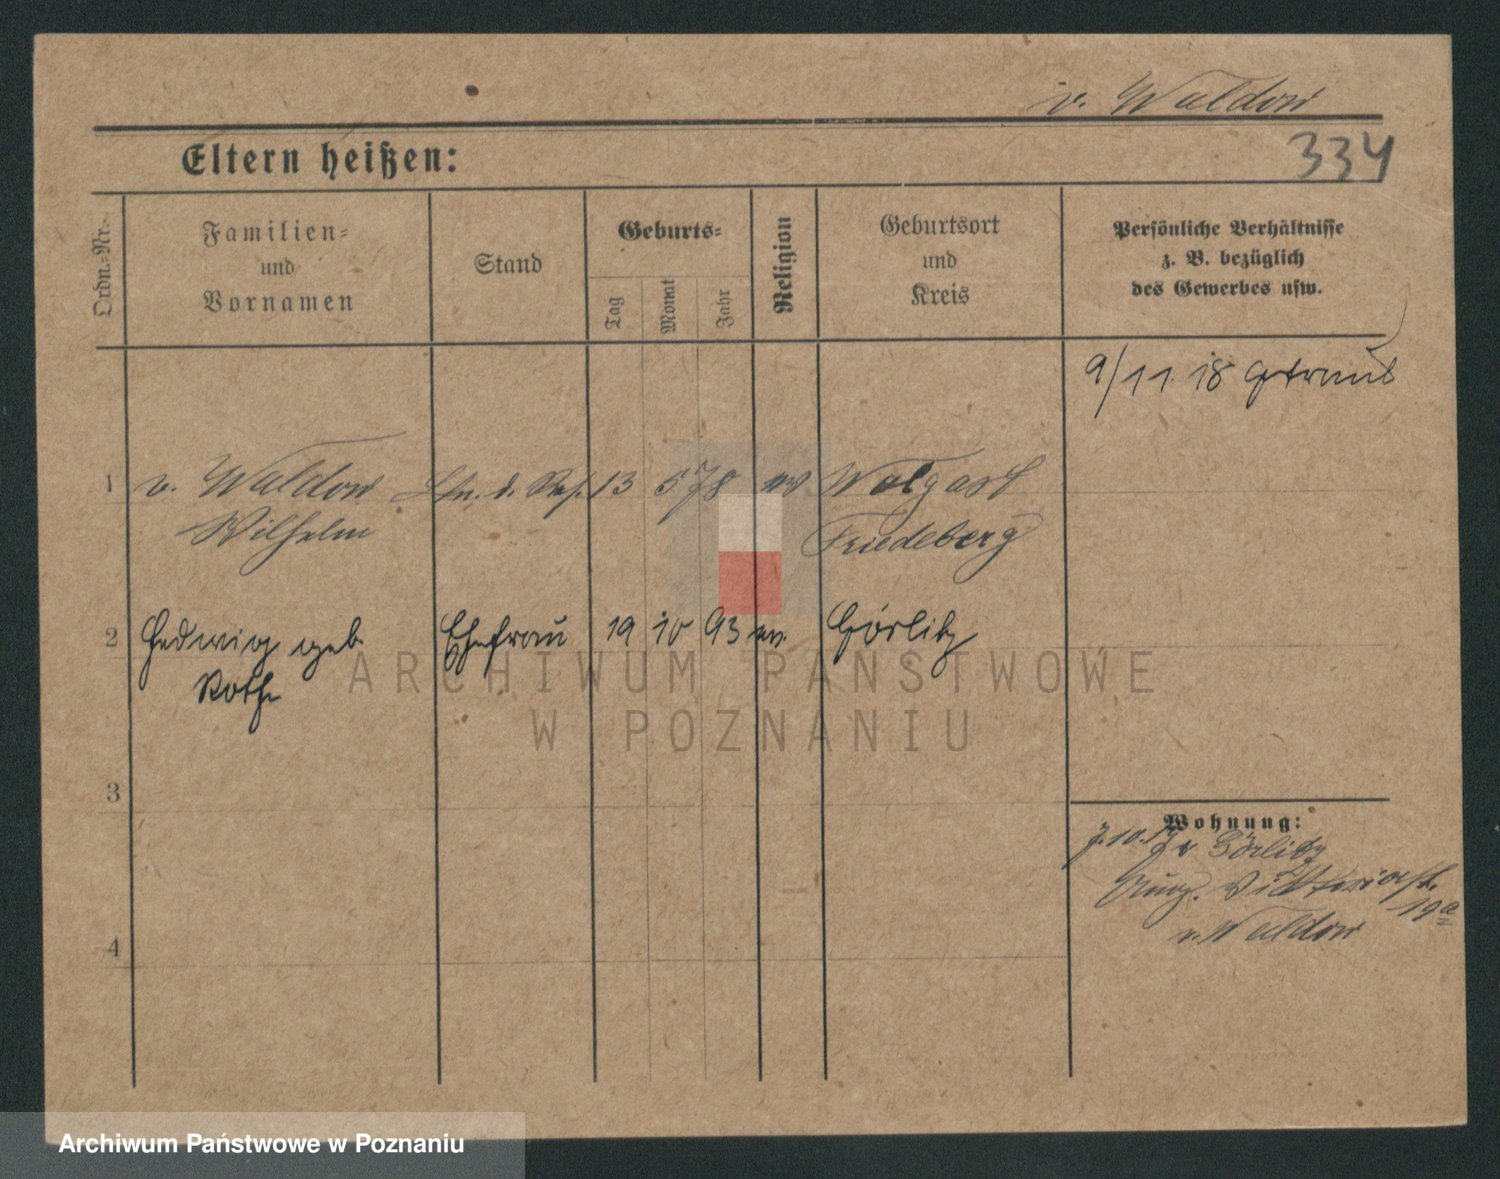 v. Waldow
Eltern heißen:
334
Ordn.-Nr.
Familien-
und
Vornamen
Stand
Geburts-
Tag
Monat
Jahr
Religion
Geburtsort
und
Kreis
Persönliche Verhältnisse
z. B. bezüglich
des Gewerbes usw.
9/11. 18 getraut
1 v. Waldow Ltn. d. Res. 13 5 78 ev Wolgast
Wilhelm Friedeberg
2 Hedwig geb. Ehefrau 19 10 93 ev. Görlitz
Rothe
3
4
Wohnung:
v Görlitz
Viktoriastr.
19a
v. Waldow
ARCHIWUM PAŃSTWOWE
W POZNANIU
Archiwum Państwowe w Poznaniu